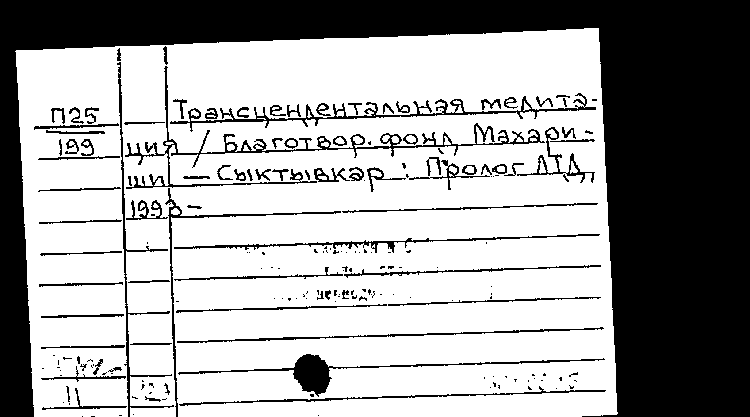 П25 Трансцендентальная медита-
199 ция / Благотвор. фонд Махари-
ши — Сыктывкар : Пролог ЛТД,
1993 -
11